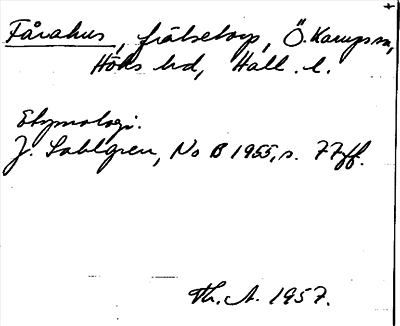 Fårahus, frälsetorp, Ö. Karups sn,
Höks hd, Hall. l.
Etymologi.
J. Sahlgren, No B 1955, s. 77ff.
Th. A. 1957.